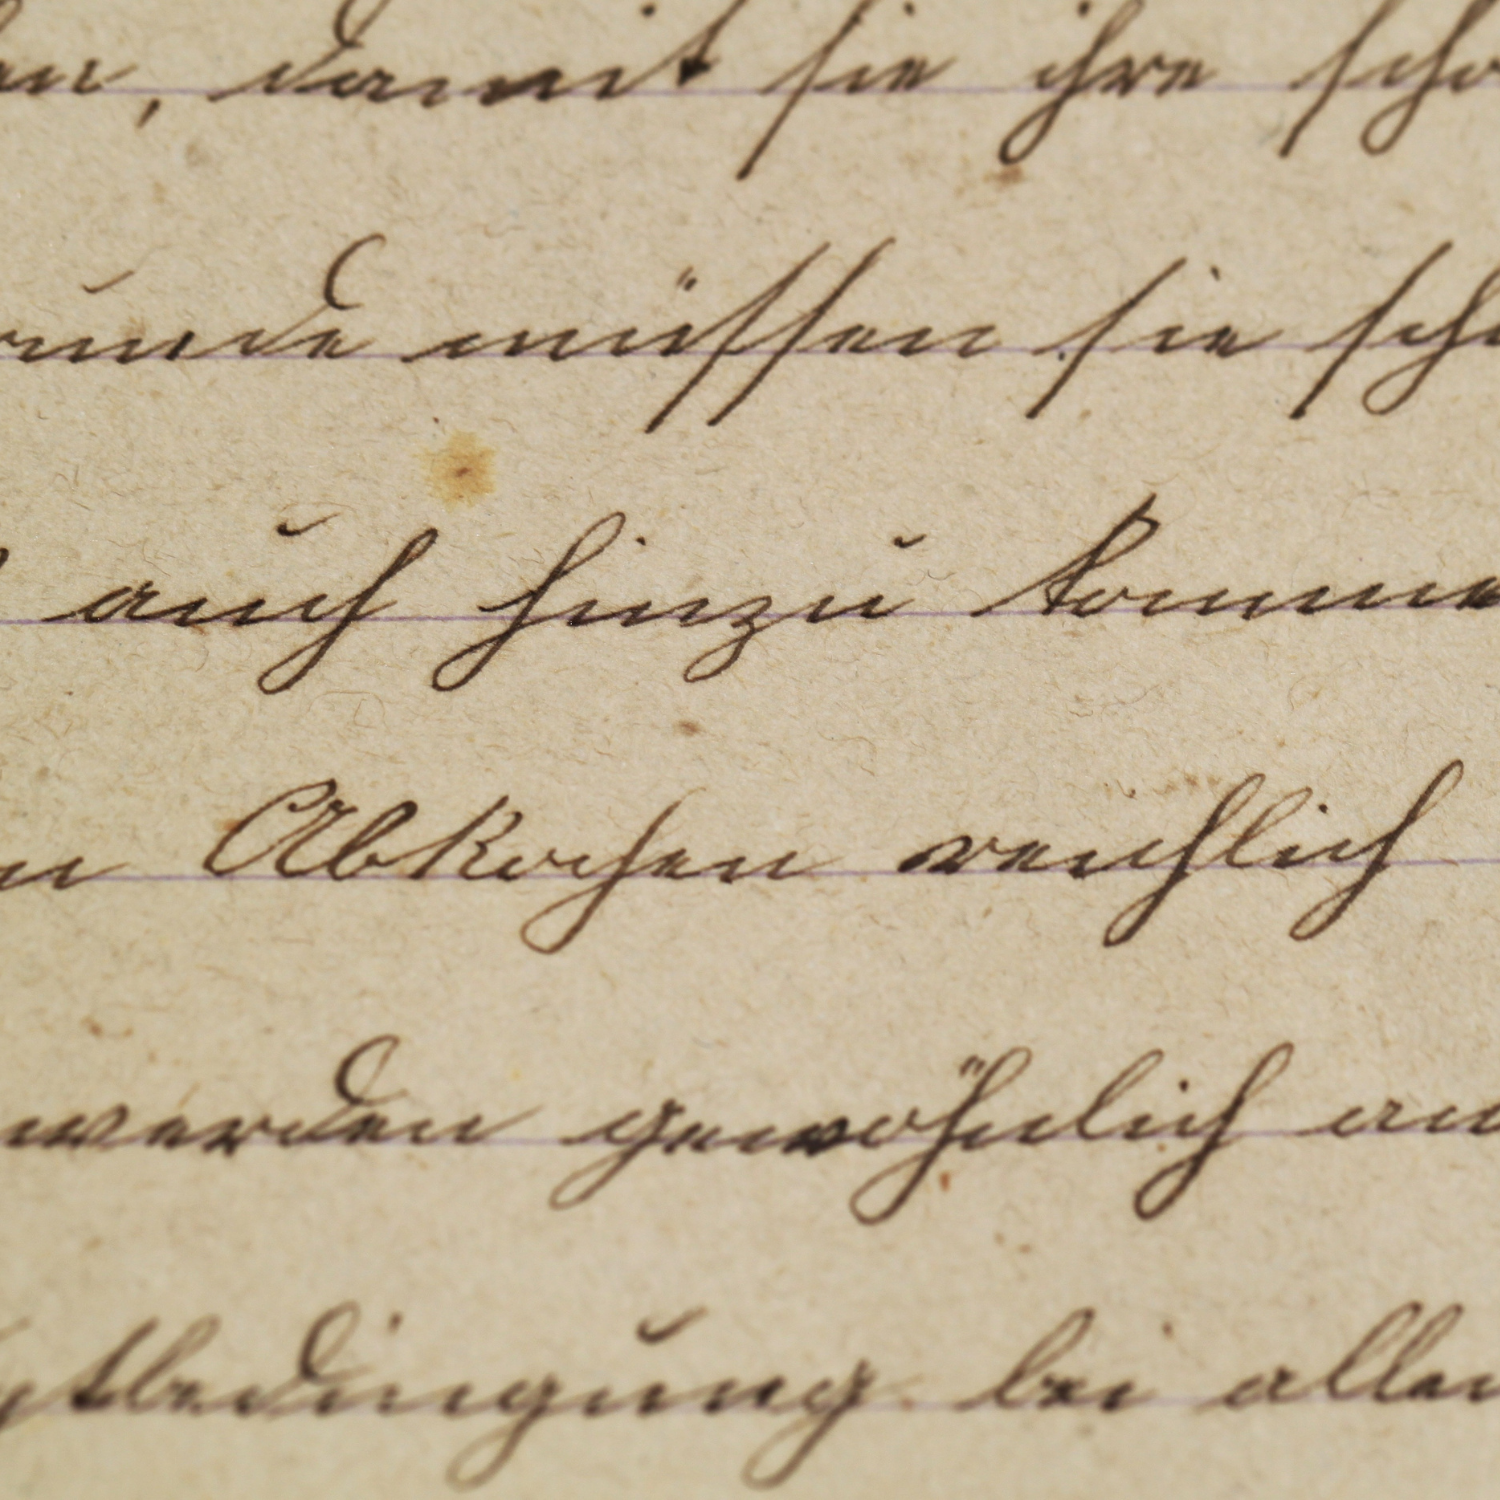 en, damit sie ihre scho
runde müssen sie sch
auch hinzu komme
n Abkochen reichlich
werden gewöhnlich an
ptbedingung bei allen